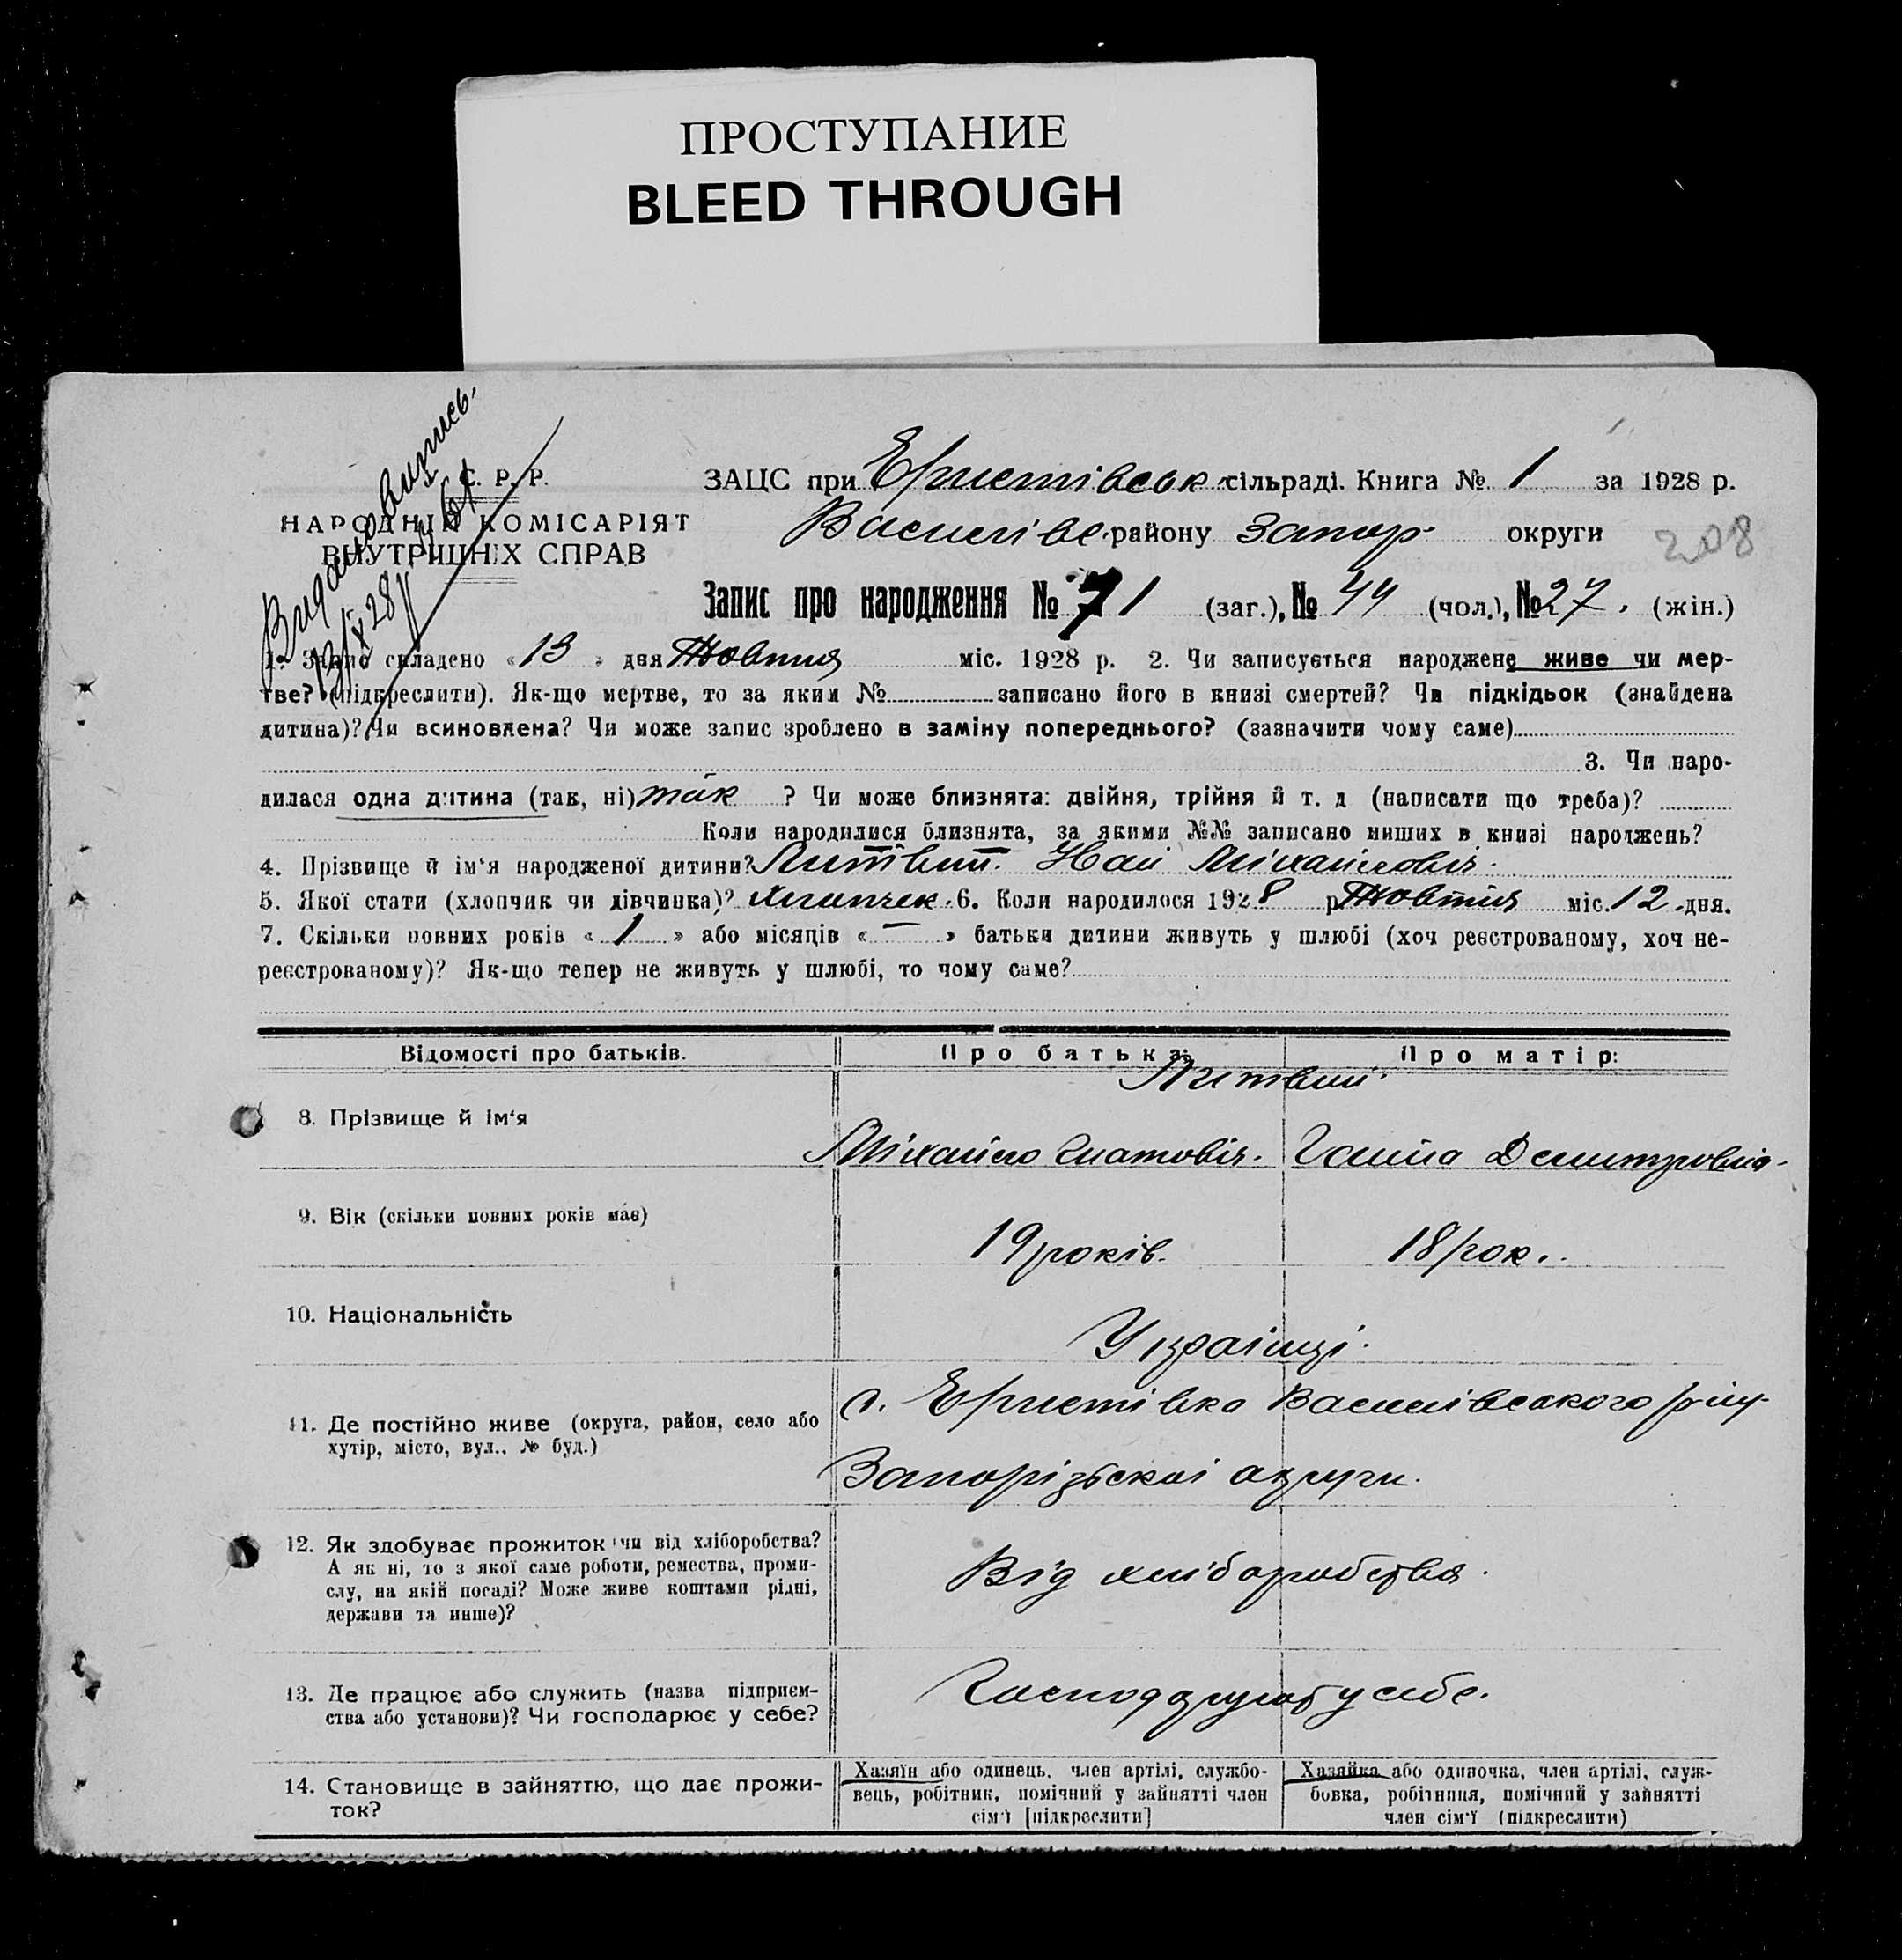 ПРОСТУПАНИЕ
BLEED THROUGH
С. Р. Р.
НАРОДНІЙ КОМІСАРІЯТ
ВНУТРІШНІХ СПРАВ
Видано выпись.
13/X 28
ЗАЦС при Еристівськ. сільраді. Книга № 1 за 1928 р.
Василівс. району Запор. округи
208
Запис про народження № 71 (заг.), № 44 (чол.), № 27. (жін.)
1. Запис складено «13» дня Жовтня міс. 1928 р. 2. Чи записується народжене живе чи мер-
тве? (підкреслити). Як-що мертве, то за яким № записано його в книзі смертей? Чи підкідьок (знайдена
дитина)? Чи всиновлена? Чи може запис зроблено в заміну попереднього? (зазначити чому саме)
3. Чи наро-
дилася одна дитина (так, ні) так ? Чи може близнята: двійня, трійня й т. д (написати що треба)?
Коли народилися близнята, за якими №№ записано инших в книзі народжень?
4. Прізвище й ім‘я народженої дитини? Литвин. Міхайлович.
5. Якої стати (хлопчик чи дівчинка)? хлипчек. 6. Коли народилося 1928 р Жовтня міс. 12 дня.
7. Скільки повних років «1» або місяців «—» батьки дитини живуть у шлюбі (хоч реєстрованому, хоч не-
реєстрованому)? Як-що тепер не живуть у шлюбі, то чому саме?
Відомості про батьків. Про батька: Про матір:
Литвин.
8. Прізвище й ім‘я
Міхайло Гнатовіч. Ганна Демитровна.
9. Вік (скільки повних років має)
19 років. 18 рок.
10. Національність
Українці.
11. Де постійно живе (округа, район, село або
хутір, місто, вул., № буд.)
с. Еристівка Василівського р-ну
Запорізьскоі округи.
12. Як здобуває прожиток чи від хліборобства?
А як ні, то з якої саме роботи, ремества, проми-
слу, на якій посаді? Може живе коштами рідні,
держави та инше)?
Від хліборобства.
13. Де працює або служить (назва підприєм-
ства або установи)? Чи господарює у себе?
у себе.
14. Становище в зайняттю, що дає прожи-
ток?
Хазяїн або одинець, член артілі, службо-
вець, робітник, помічний у зайнятті член
сім‘ї [підкреслити]
Хазяйка або одиночка, член артілі, служ-
бовка, робітниця, помічний у зайнятті
член сім‘ї (підкреслити)